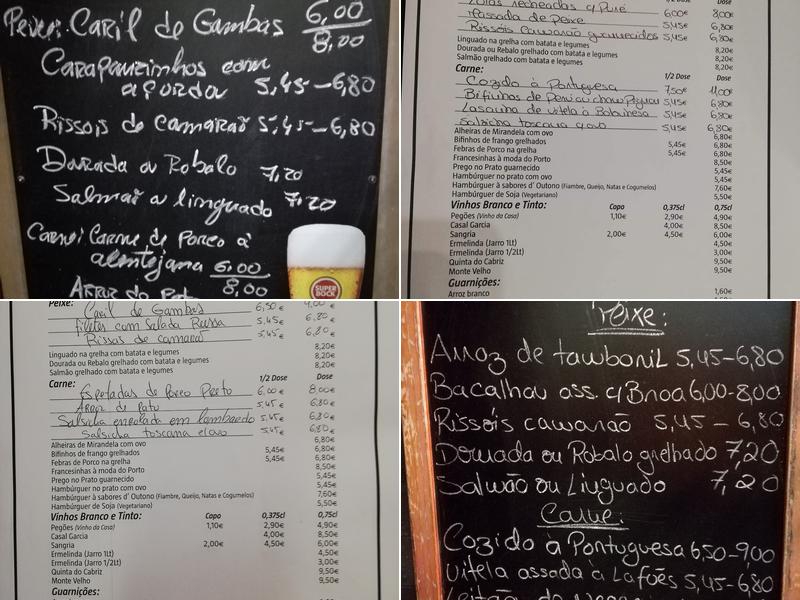 Peixe: Caril de Gambas 6,00
8,00
Carapauzinhos com
açorda 5,45-6,80
Rissois de camarão 5,45-6,80
Dourada ou Robalo 7,20
Salmão ou linguado 7,20
Carne: Carne de Porco à
alentejana 6,00
8,00
Arroz de Pato
SUPER BOCK
1/2 Dose Dose
recheadas c/ Puré 6,00€ 8,00€
Massada de Peixe 5,45€ 6,80€
Rissóis camarão guarnecidos 5,45€ 6,80€
Linguado na grelha com batata e legumes 8,20€
Dourada ou Robalo grelhado com batata e legumes 8,20€
Salmão grelhado com batata e legumes 8,20€
Carne: 1/2 Dose Dose
Cozido à Portuguesa 7,50€ 11,00€
Bifinhos de Peru c/ champignon 5,45€ 6,80€
Lasanha de vitela à Bolonhesa 5,45€ 6,80€
Salsicha toscana c/ovo 5,45€ 6,80€
Alheiras de Mirandela com ovo 6,80€
Bifinhos de frango grelhados 5,45€ 6,80€
Febras de Porco na grelha 5,45€ 6,80€
Francesinhas à moda do Porto 8,50€
Prego no Prato guarnecido 5,45€
Hambúrguer no prato com ovo 5,45€
Hambúrguer à sabores d' Outono (Fiambre, Queijo, Natas e Cogumelos) 7,60€
Hambúrguer de Soja (Vegetariano) 5,50€
Vinhos Branco e Tinto: Copo 0,375cl 0,75cl
Pegões (Vinho da Casa) 1,10€ 2,90€ 4,90€
Casal Garcia 4,00€ 8,50€
Sangria 2,00€ 4,50€ 6,00€
Ermelinda (Jarro 1Lt) 4,50€
Ermelinda (Jarro 1/2Lt) 3,00€
Quinta do Cabriz 9,50€
Monte Velho 9,50€
Guarnições:
Arroz branco 1,60€
Peixe:
Caril de Gambas 6,50€ 9,00€
Filetes com Salada Russa 5,45€ 6,80€
Rissois de camarão 5,45€ 6,80€
Linguado na grelha com batata e legumes 8,20€
Dourada ou Rebalo grelhado com batata e legumes 8,20€
Salmão grelhado com batata e legumes 8,20€
Carne: 1/2 Dose Dose
Espetadas de Porco Preto 6,00€ 8,00€
Arroz de Pato 5,45€ 6,80€
Salsicha enrolada em lombardo 5,45€ 6,80€
Salsicha toscana c/ovo 5,45€ 6,80€
Alheiras de Mirandela com ovo 6,80€
Bifinhos de frango grelhados 5,45€ 6,80€
Febras de Porco na grelha 5,45€ 6,80€
Francesinhas à moda do Porto 8,50€
Prego no Prato guarnecido 5,45€
Hambúrguer no prato com ovo 5,45€
Hambúrguer à sabores d' Outono (Fiambre, Queijo, Natas e Cogumelos) 7,60€
Hambúrguer de Soja (Vegetariano) 5,50€
Vinhos Branco e Tinto: Copo 0,375cl 0,75cl
Pegões (Vinho da Casa) 1,10€ 2,90€ 4,90€
Casal Garcia 4,00€ 8,50€
Sangria 2,00€ 4,50€ 6,00€
Ermelinda (Jarro 1Lt) 4,50€
Ermelinda (Jarro 1/2Lt) 3,00€
Quinta do Cabriz 9,50€
Monte Velho 9,50€
Guarnições:
Peixe:
Arroz de tamboril 5,45-6,80
Bacalhau ass. c/Broa 6,00-8,00
Rissóis camarão 5,45-6,80
Dourada ou Robalo grelhado 7,20
Salmão ou Linguado 7,20
Carne:
Cozido à Portuguesa 6,50-9,00
Vitela assada à Lafões 5,45-6,80